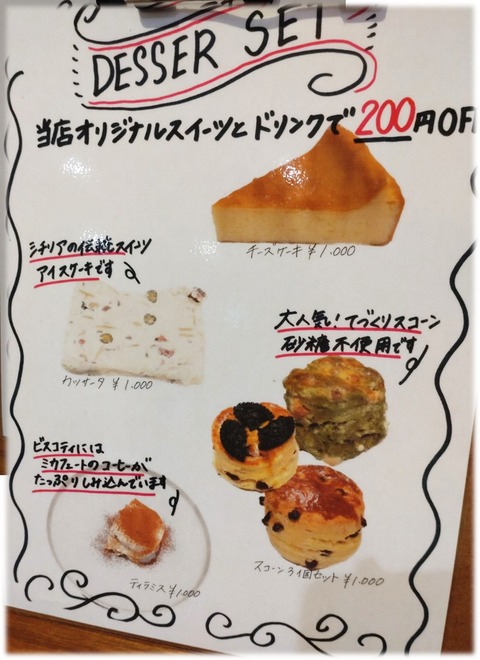 DESSER SET
当店オリジナルスイーツとドリンクで200円OFF
チーズケーキ ¥1,000
シチリアの伝統スイーツ
アイスケーキです
カッサータ ¥1,000
大人気!てづくりスコーン
砂糖不使用です
ビスコティには
ミカフェートのコーヒーが
たっぷりしみ込んでいます
ティラミス ¥1,000
スコーン3個セット ¥1,000